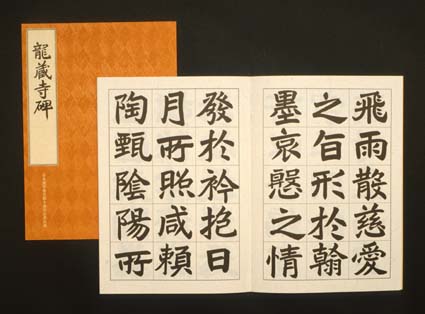 龍藏寺碑
飛雨散慈愛
之旨形於翰
墨哀愍之情
發於衿抱日
月所照咸賴
陶甄陰陽所